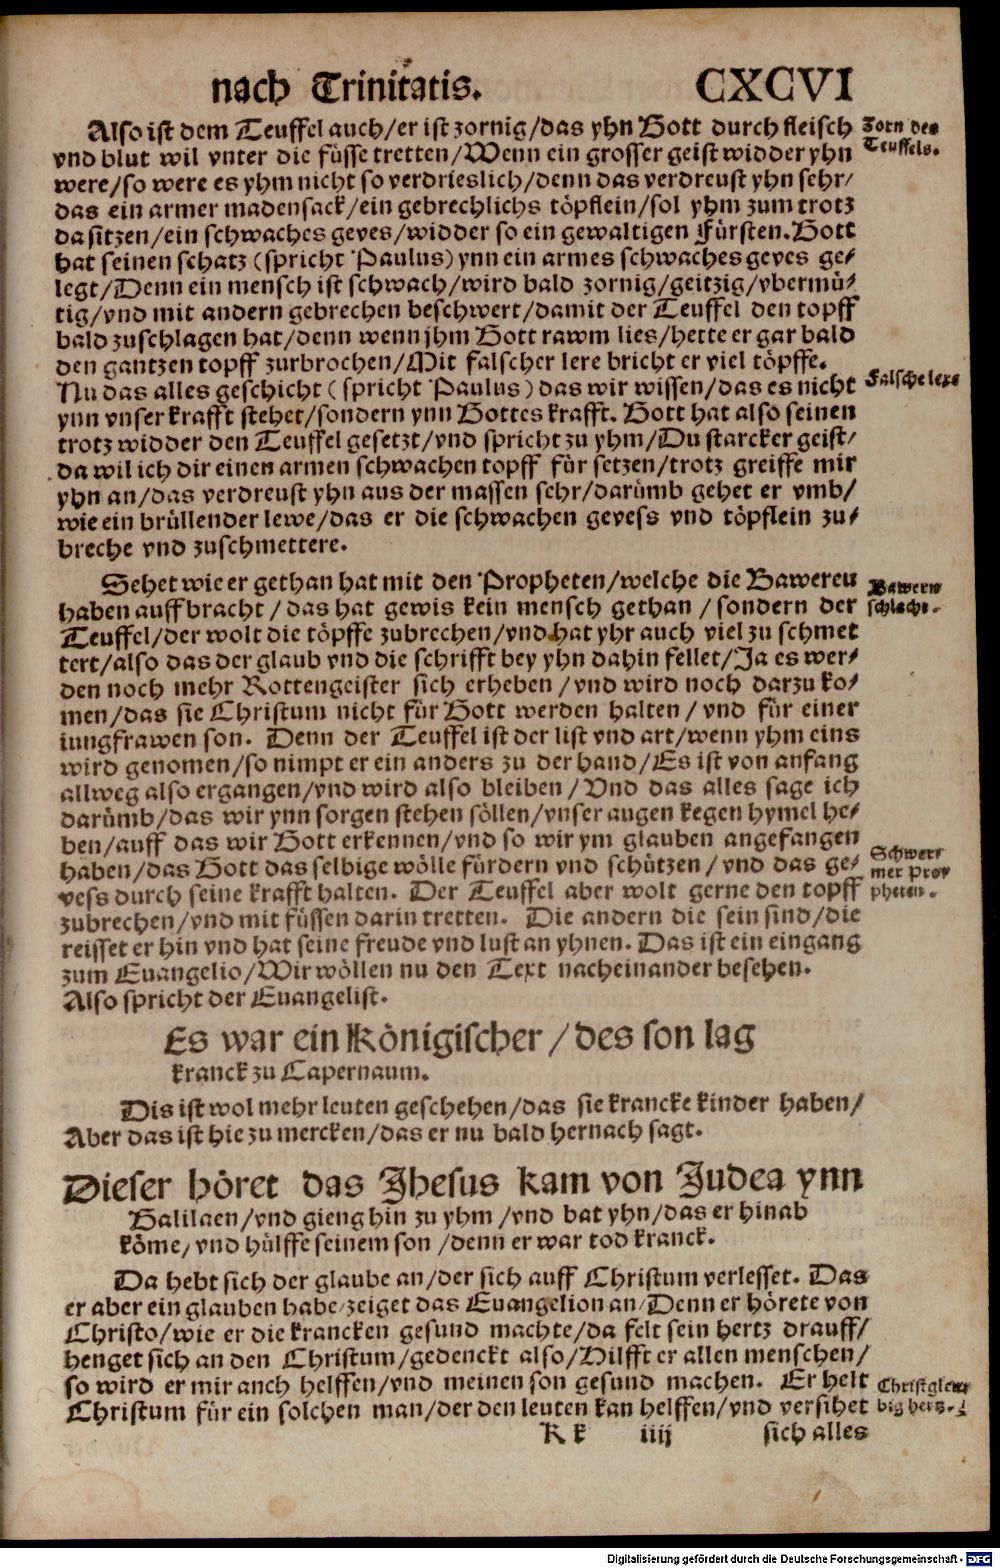 nach Trinitatis. CXCVI
Also ist dem Teuffel auch/er ist zornig/das yhn Gott durch fleisch
vnd blut wil vnter die füsse tretten/Wenn ein grosser geist widder yhn
were/so were es yhm nicht so verdrieslich/denn das verdreust yhn sehr/
das ein armer madensack/ein gebrechlichs töpflein/sol yhm zum trotz
da sitzen/ein schwaches geves/widder so ein gewaltigen Fürsten. Gott
hat seinen schatz (spricht Paulus) ynn ein armes schwaches geves ge-
legt/Denn ein mensch ist schwach/wird bald zornig/geitzig/vbermü-
tig/vnd mit andern gebrechen beschwert/damit der Teuffel den topff
bald zuschlagen hat/denn wenn jhm Gott rawm lies/hette er gar bald
den gantzen topff zurbrochen/Mit falscher lere bricht er viel töpffe.
Nu das alles geschicht (spricht Paulus) das wir wissen/das es nicht
ynn vnser krafft stehet/sondern ynn Gottes krafft. Gott hat also seinen
trotz widder den Teuffel gesetzt/vnd spricht zu yhm/Du starcker geist/
da wil ich dir einen armen schwachen topff für setzen/trotz greiffe mir
yhn an/das verdreust yhn aus der massen sehr/darümb gehet er vmb/
wie ein brüllender lewe/das er die schwachen gevess vnd töpflein zu-
breche vnd zuschmettere.
Zorn des
Teuffels.
Falsche lere
Sehet wie er gethan hat mit den Propheten/welche die Baweren
haben auffbracht/das hat gewis kein mensch gethan/sondern der
Teuffel/der wolt die töpffe zubrechen/vnd hat yhr auch viel zu schmet
tert/also das der glaub vnd die schrifft bey yhn dahin fellet/Ja es wer-
den noch mehr Rottengeister sich erheben/vnd wird noch darzu ko-
men/das sie Christum nicht für Gott werden halten/vnd für einer
iungfrawen son. Denn der Teuffel ist der list vnd art/wenn yhm eins
wird genomen/so nimpt er ein anders zu der hand/Es ist von anfang
allweg also ergangen/vnd wird also bleiben/Vnd das alles sage ich
darümb/das wir ynn sorgen stehen söllen/vnser augen kegen hymel he-
ben/auff das wir Gott erkennen/vnd so wir ym glauben angefangen
haben/das Gott das selbige wölle fürdern vnd schützen/vnd das ge-
vess durch seine krafft halten. Der Teuffel aber wolt gerne den topff
zubrechen/vnd mit füssen darin tretten. Die andern die sein sind/die
reisset er hin vnd hat seine freude vnd lust an yhnen. Das ist ein eingang
zum Euangelio/Wir wöllen nu den Text nacheinander besehen.
Also spricht der Euangelist.
Bawern
schlacht.
Schwer-
mer Pro-
pheten.
Es war ein Königischer/des son lag
kranck zu Capernaum.
Dis ist wol mehr leuten geschehen/das sie krancke kinder haben/
Aber das ist hie zu mercken/das er nu bald hernach sagt.
Dieser höret das Jhesus kam von Judea ynn
Galilaen/vnd gieng hin zu yhm/vnd bat yhn/das er hinab
köme/vnd hülffe seinem son/denn er war tod kranck.
Da hebt sich der glaube an/der sich auff Christum verlesset. Das
er aber ein glauben habe/zeiget das Euangelion an/Denn er hörete von
Christo/wie er die krancken gesund machte/da felt sein hertz drauff/
henget sich an den Christum/gedenckt also/Hilfft er allen menschen/
so wird er mir anch helffen/vnd meinen son gesund machen. Er helt
Christum für ein solchen man/der den leuten kan helffen/vnd versihet
Christgleu-
big hertz.
K k iiij sich alles
Digitalisierung gefördert durch die Deutsche Forschungsgemeinschaft - DFG